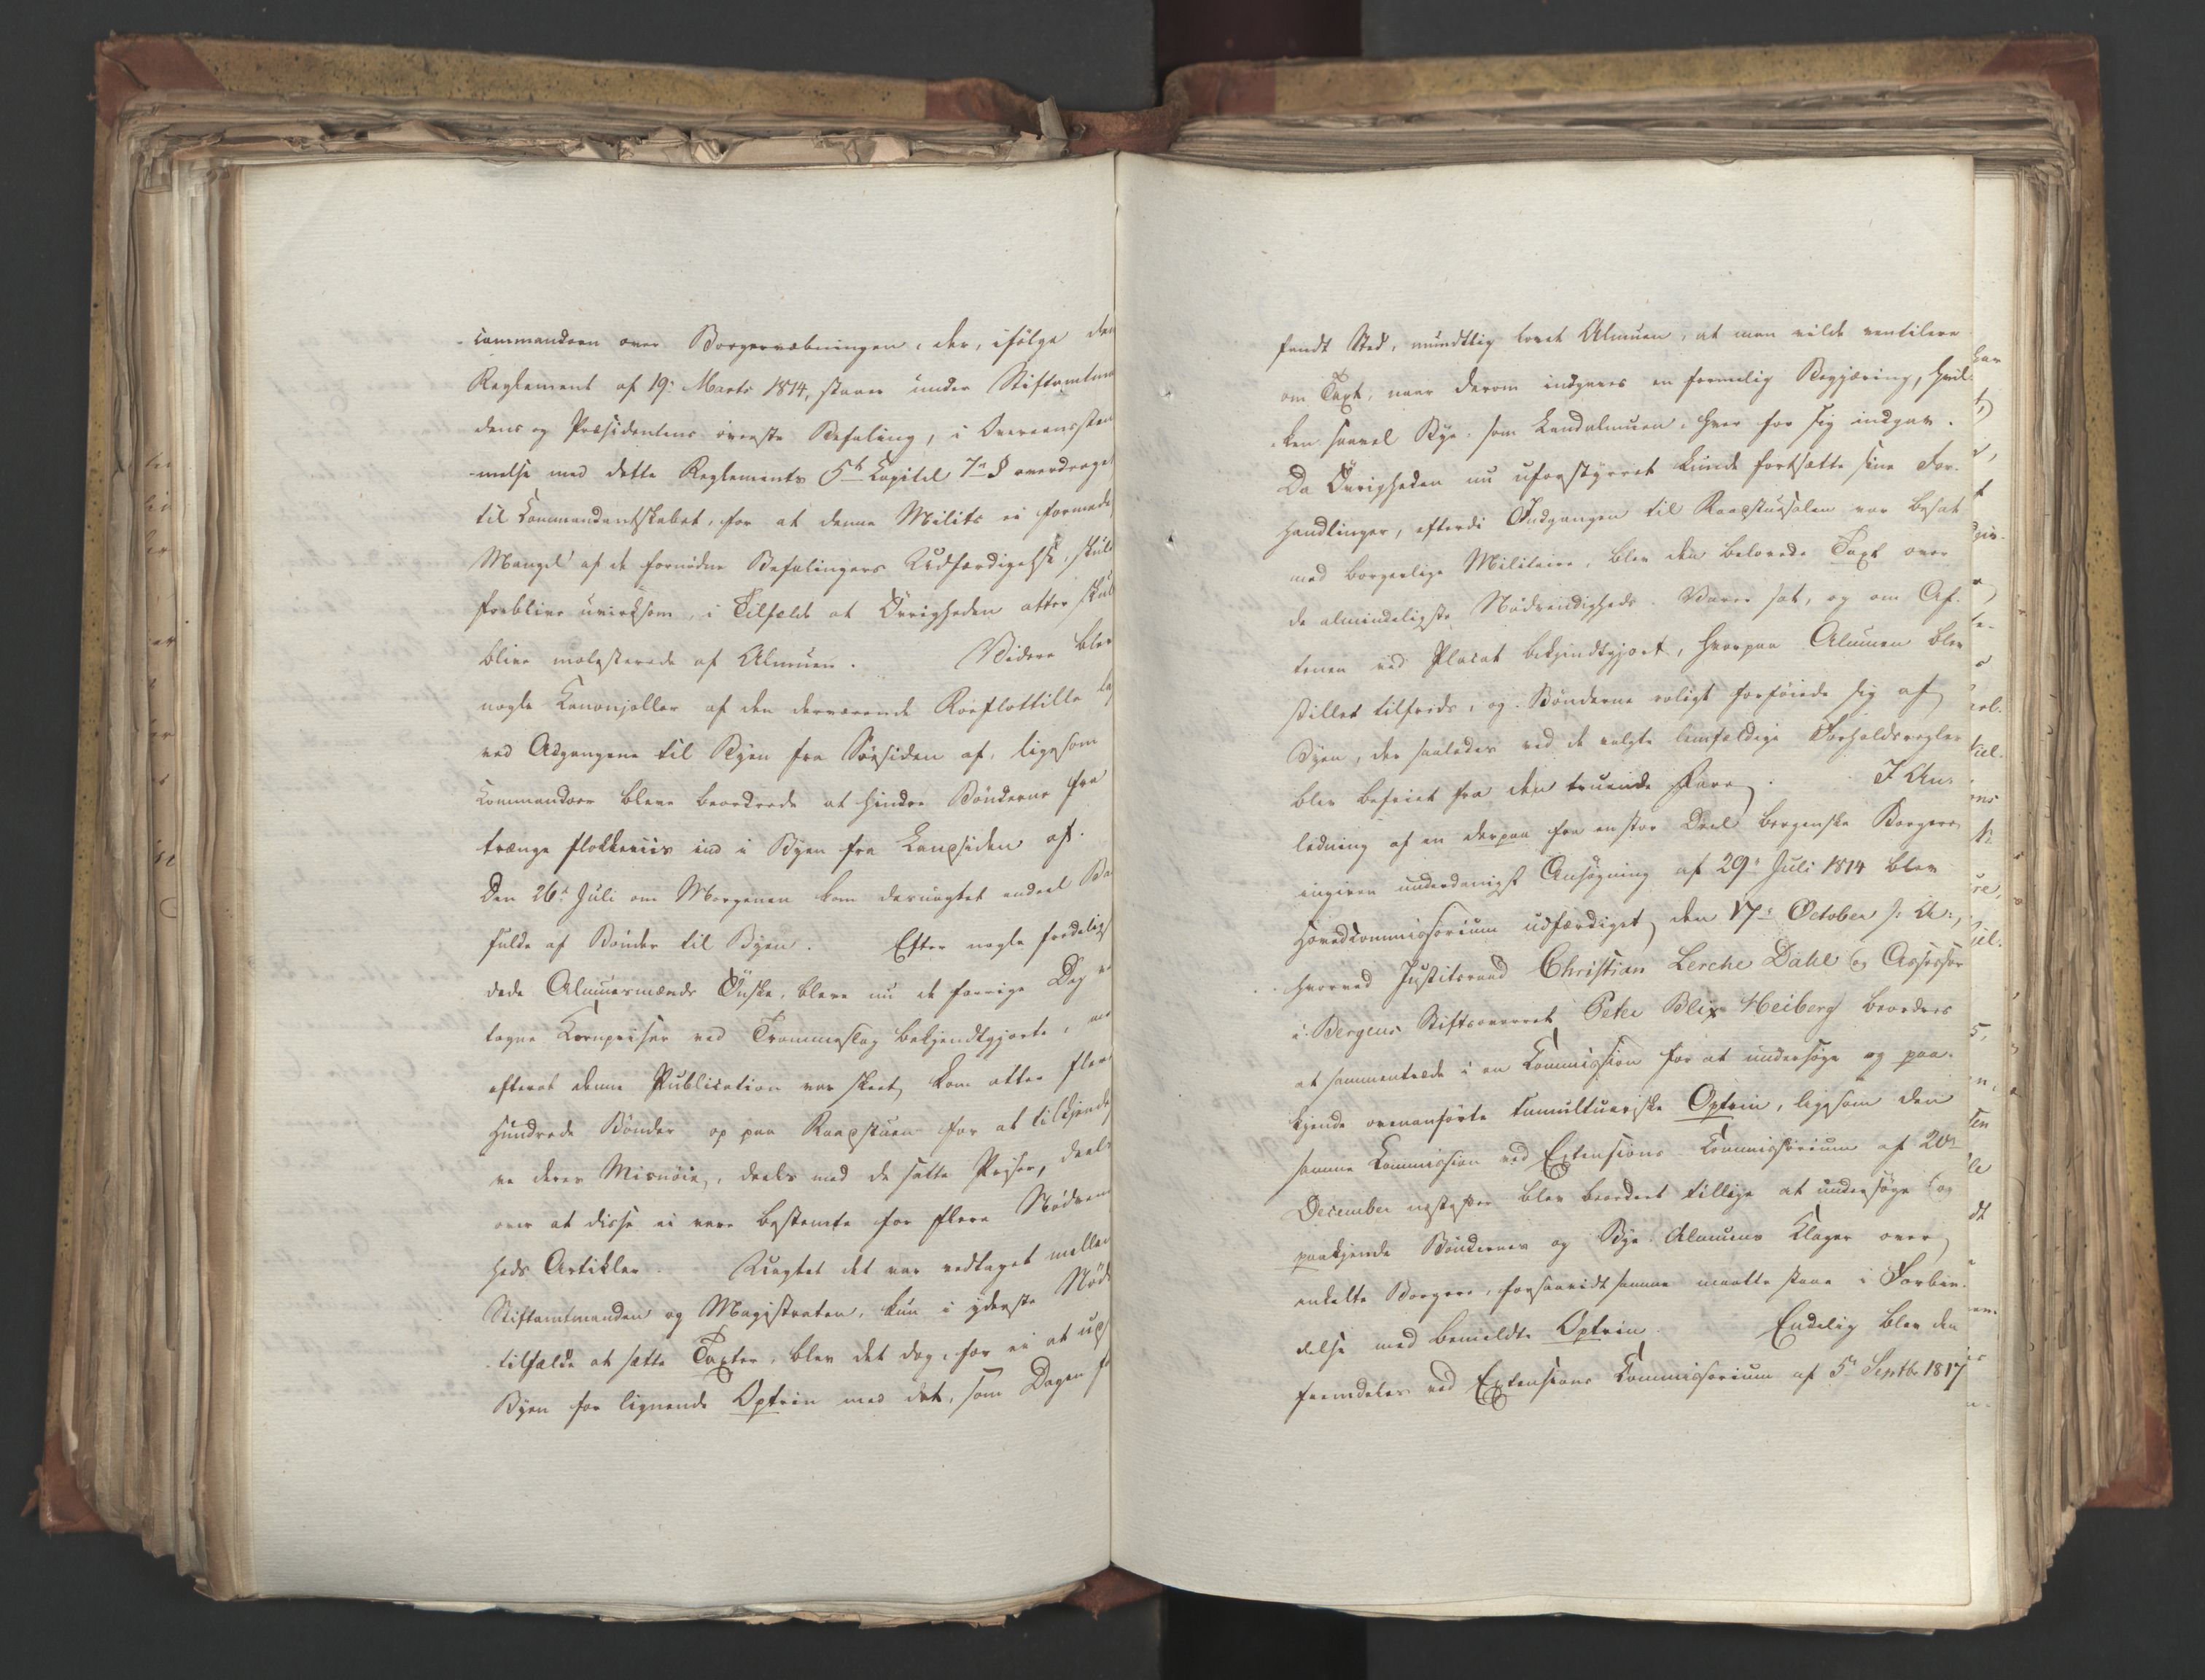 commandoen over Borgervæbningen, der, ifölge den
Reglement af 19de Marts 1814, staaer under Stiftamtman
dens og Præsidentens överste Befaling, i Overeensstem
melse med dette Reglements 5te Capitel 7de § overdraget
til Commandantskabet, for at denne Milits ei formedelst
Mangel af de fornödne Befalingers Udfærdigelse, skulde
forblive uvirksom, i Tilfælde at Övrigheden atter skulde
blive molesterede af Almuen. Videre blev
nogle Canonjoller af den derværende Roeflottille lagt
ved Adgangene til Byen fra Söesiden af, ligesom
Commandoer bleve beordrede at hindre Bönderne fra
trænge flokkeviis ind i Byen fra Landsiden af.
Den 26de Juli om Morgenen kom desuagtet endeel Baad
fulde af Bönder til Byen. Efter nogle fredelig
dede Almuesmænds Önske, bleve nu de forrige Dag ved
tagne Kornpriser ved Trommeslag bekjendtgjorte, men
efterat denne Publication var skeet, kom atter flere
hundrede Bönder op paa Raadstuen for at tilkjendegi
ve deres Misnöie, deels med de satte Priser, deels
over at disse ei vare bestemte for flere Nödvendig
heds Artikler. Uagtet det var vedtaget mellem
Stiftamtmanden og Magistraten, kun i yderste Nöds
tilfælde at sætte Taxter, blev det dog, for ei at udsætte
Byen for lignende Optrin med det, som Dagen för
fandt Sted, mundtlig lovet Almuen, at man vilde ventilere
om Taxt, naar derom indgaves en formelig Begjæring, hvil-
ken saavel Bye- som Landalmuen, hver for sig indgav.
Da Övrigheden nu uforstyrret kunde fortsætte sine For-
handlinger, efterdi Indgangen til Raadstuesalen var besat
med borgerlige Militaire, blev den belovede Taxt over
de almindeligste Nödvendigheds Varer sat, og om Af-
tenen ved Placat bekjendtgjort, hvorpaa Almuen blev
stillet tilfreds, og Bönderne roligt forföiede sig af
Byen, der saaledes ved de valgte lemfældige Forholdsregler
blev befriet fra den truende Fare. I An-
ledning af en derpaa fra en stor Deel bergenske Borgere
ingiven underdanigst Ansögning af 29de Juli 1814 blev
Hovedcommissorium udfærdiget den 17de October s: A:,
hvorved Justitsraad Christian Lerche Dahl og Assessor
i Bergens Stiftsoverret Peter Blix Heiberg beordres
at sammentræde i en Commission for at undersöge og paa-
kjende ovenanförte tumultuariske Optrin, ligesom den
samme Commission ved Extensions Commissorium af 20de
December næstefter blev beordret tillige at undersöge og
paakjende Böndernes og Bye Almuens Klager over
enkelte Borgere, forsaavidt samme maatte staae i Forbin-
delse med bemeldte Optrin. Endelig blev den
fremdeles ved Extensions Commissorium af 5te Septbr 1817